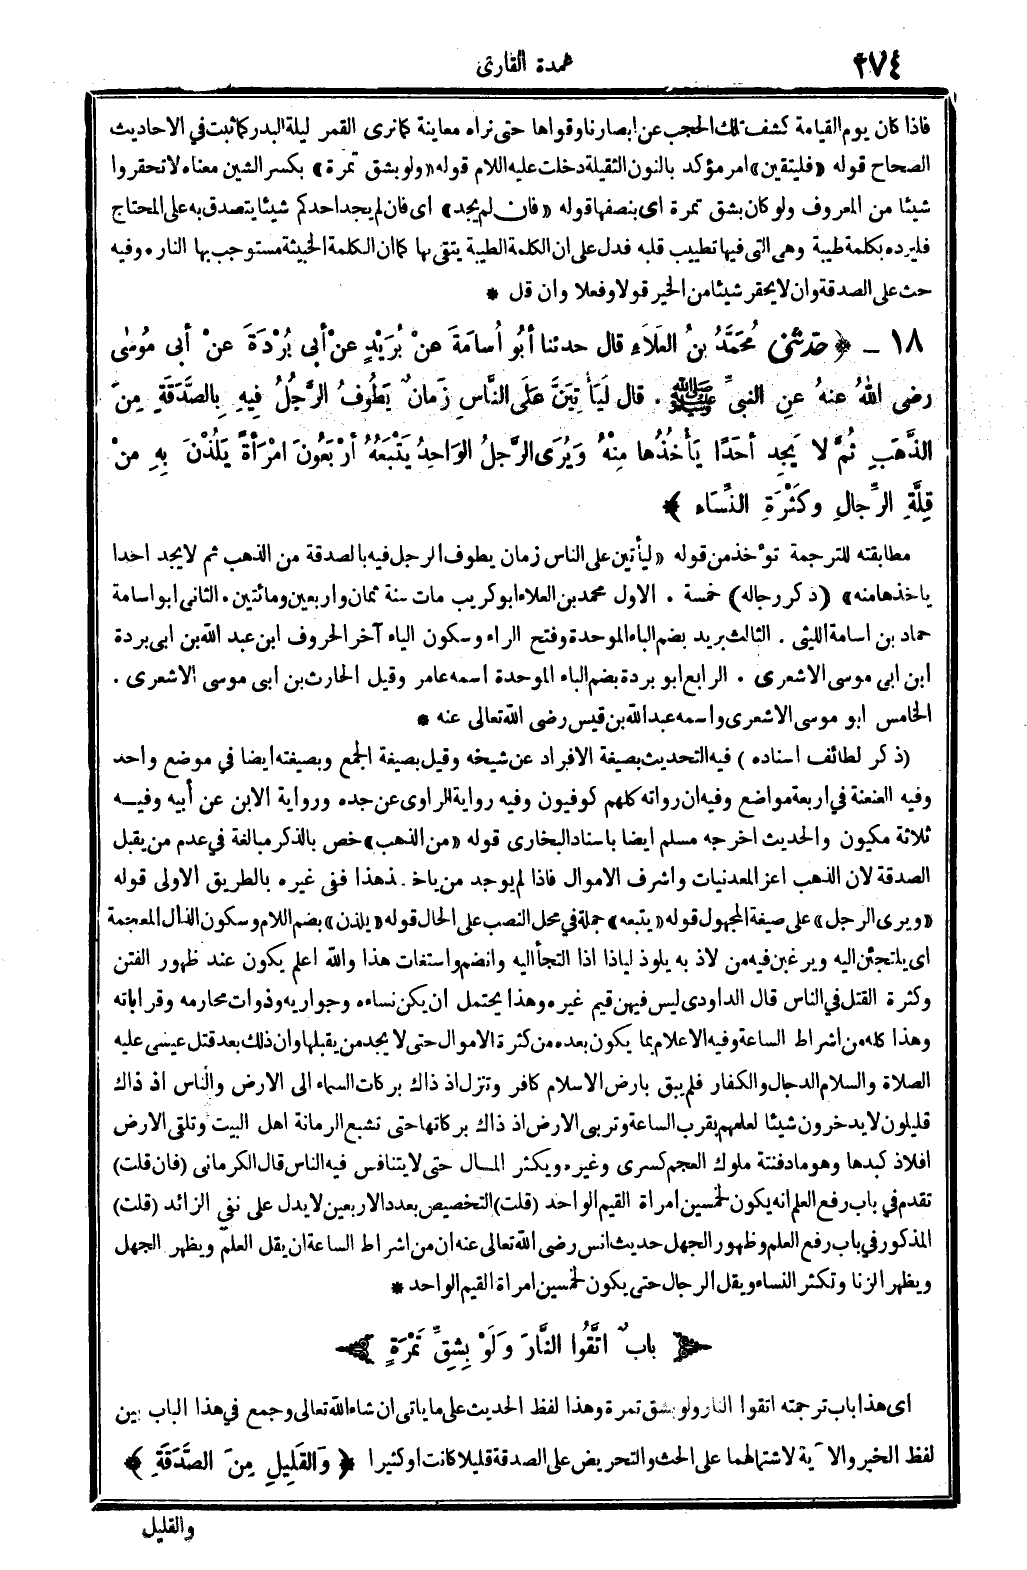 ٢٧٤
عمدة القارئ
فاذا كان يوم القيامة كشف تلك الحجب عن ابصارنا وقواها حتى نراه معاينة كما نرى القمر ليلة البدر كما ثبت في الاحاديث
الصحاح قوله «فليتقين» امر مؤكد بالنون الثقيلة دخلت عليه اللام قوله «ولو بشق تمرة» بكسر الشين معناه لا تحقروا
شيئا من المعروف ولو كان بشق تمرة اى بنصفها قوله «فان لم يجد» اى فان لم يجد احدكم شيئا يتصدق به على المحتاج
فليرده بكلمة طيبة وهى التى فيها تطييب قلبه فدل على ان الكلمة الطيبة يتقى بها كما ان الكلمة الخبيثة مستوجب بها النار ٠ وفيه
حث على الصدقة وان لا يحقر شيئا من الخير قولا وفعلا وان قل *
١٨ ـ ﴿ حدثنى مُحَمَّدُ بنُ العَلَاءِ قال حدثنا أبُو أُسامَةَ عنْ بُرَيْدٍ عنْ أبى بُرْدَةَ عنْ أبى مُوسٰى
رضى اللهُ عنهُ عنِ النبىِّ ﷺ . قال لَيَأْتِيَنَّ عَلَى النَّاسِ زَمانٌ يَطُوفُ الرَّجُلُ فِيهِ بِالصَّدَقَةِ مِنَ
الذَّهَبِ ثُمَّ لا يَجِدِ أحَدًا يَأْخُذُها مِنْهُ وَيُرَى الرَّجلُ الوَاحِدُ يَتْبَعُهُ أرْبَعُونَ امْرَأةً يَلُذْنَ بِهِ منْ
قِلَّةِ الرِّجالِ وكَثْرَةِ النِّسَاءِ ﴾
مطابقته للترجمة تؤخذ من قوله «ليأتين على الناس زمان يطوف الرجل فيه بالصدقة من الذهب ثم لا يجد احدا
ياخذها منه» (ذكر رجاله) خمسة ٠ الاول محمد بن العلاء ابو كريب مات سنة ثمان واربعين ومائتين ٠ الثانى ابو اسامة
حماد بن اسامة الليثى . الثالث بريد بضم الباء الموحدة وفتح الراء وسكون الياء آخر الحروف ابن عبد الله بن ابى بردة
ابن ابى موسى الاشعرى ٠ الرابع ابو بردة بضم الباء الموحدة اسمه عامر وقيل الحارث بن ابى موسى الاشعرى .
الخامس ابو موسى الاشعرى واسمه عبد الله بن قيس رضى الله تعالى عنه *
(ذكر لطائف اسناده) فيه التحديث بصيغة الافراد عن شيخه وقيل بصيغة الجمع وبصيغته ايضا في موضع واحد
وفيه العنعنة في اربعة مواضع وفيه ان رواته كلهم كوفيون وفيه رواية الراوى عن جده ورواية الابن عن أبيه وفيــه
ثلاثة مكيون والحديث اخرجه مسلم ايضا باسناد البخارى قوله «من الذهب» خص بالذكر مبالغة في عدم من يقبل
الصدقة لان الذهب اعز المعدنيات واشرف الاموال فاذا لم يوجد من ياخذ هذا ففى غيره بالطريق الاولى قوله
«ويرى الرجل» على صيغة المجهول قوله «يتبعه» جملة في محل النصب على الحال قوله «يلذن» بضم اللام وسكون الذال المعجمة
اى يلتجئن اليه ويرغبن فيه من لاذ به يلوذ لياذا اذا التجأ اليه وانضم واستغاث هذا والله اعلم يكون عند ظهور الفتن
وكثرة القتل في الناس قال الداودى ليس فيهن قيم غيره وهذا يحتمل ان يكن نساءه وجواريه وذوات محارمه وقراباته
وهذا كله من اشراط الساعة وفيه الاعلام بما يكون بعده من كثرة الاموال حتى لا يجد من يقبلها وان ذلك بعد قتل عيسى عليه
الصلاة والسلام الدجال والكفار فلم يبق بارض الاسلام كافر وتنزل اذ ذاك بركات السماء الى الارض والناس اذ ذاك
قليلون لا يدخرون شيئا لعلمهم بقرب الساعة وتربى الارض اذ ذاك بركاتها حتى تشبع الرمانة اهل البيت وتلقى الارض
افلاذ كبدها وهو ما دفنته ملوك العجم كسرى وغيره ويكثر المــال حتى لا يتنافس فيه الناس قال الكرمانى (فان قلت)
تقدم في باب رفع العلم انه يكون لخمسين امراة القيم الواحد (قلت) التخصيص بعدد الاربعين لا يدل على نفى الزائد (قلت)
المذكور في باب رفع العلم وظهور الجهل حديث انس رضى الله تعالى عنه ان من اشراط الساعة ان يقل العلم ويظهر الجهل
ويظهر الزنا وتكثر النساء ويقل الرجال حتى يكون لخمسين امراة القيم الواحد *
بابٌ اتَّقُوا النَّارَ وَلَوْ بِشِقِّ تَمْرَةٍ
اى هذا باب ترجمته اتقوا النار ولو بشق تمرة وهذا لفظ الحديث على ما ياتى ان شاء الله تعالى وجمع في هذا الباب بين
لفظ الخبر والآية لاشتمالهما على الحث والتحريض على الصدقة قليلا كانت او كثيرا ﴿ وَالقَلِيلِ مِنَ الصَّدَقَةِ ﴾
والقليل